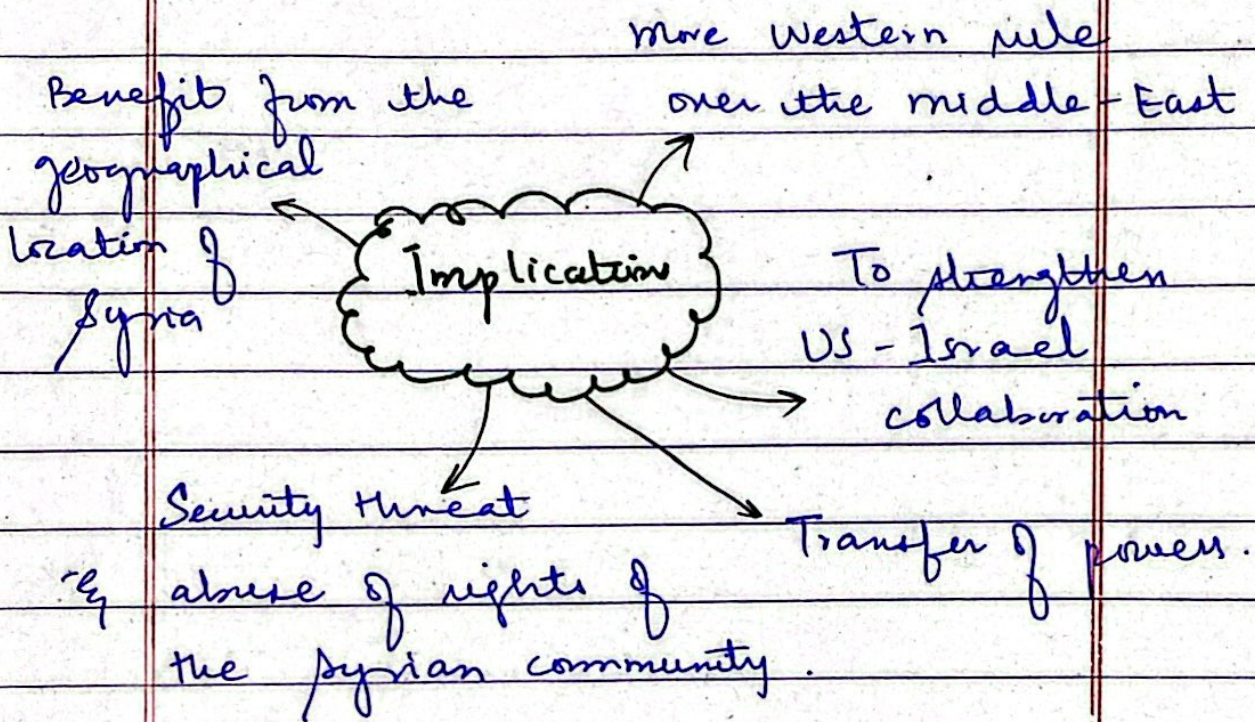 More Western rule
over the middle-East
Benefit from the
geographical
location of
Syria
Implications
To strengthen
US - Israel
collaboration
Transfer of powers.
Security threat
& abuse of rights of
the syrian community.